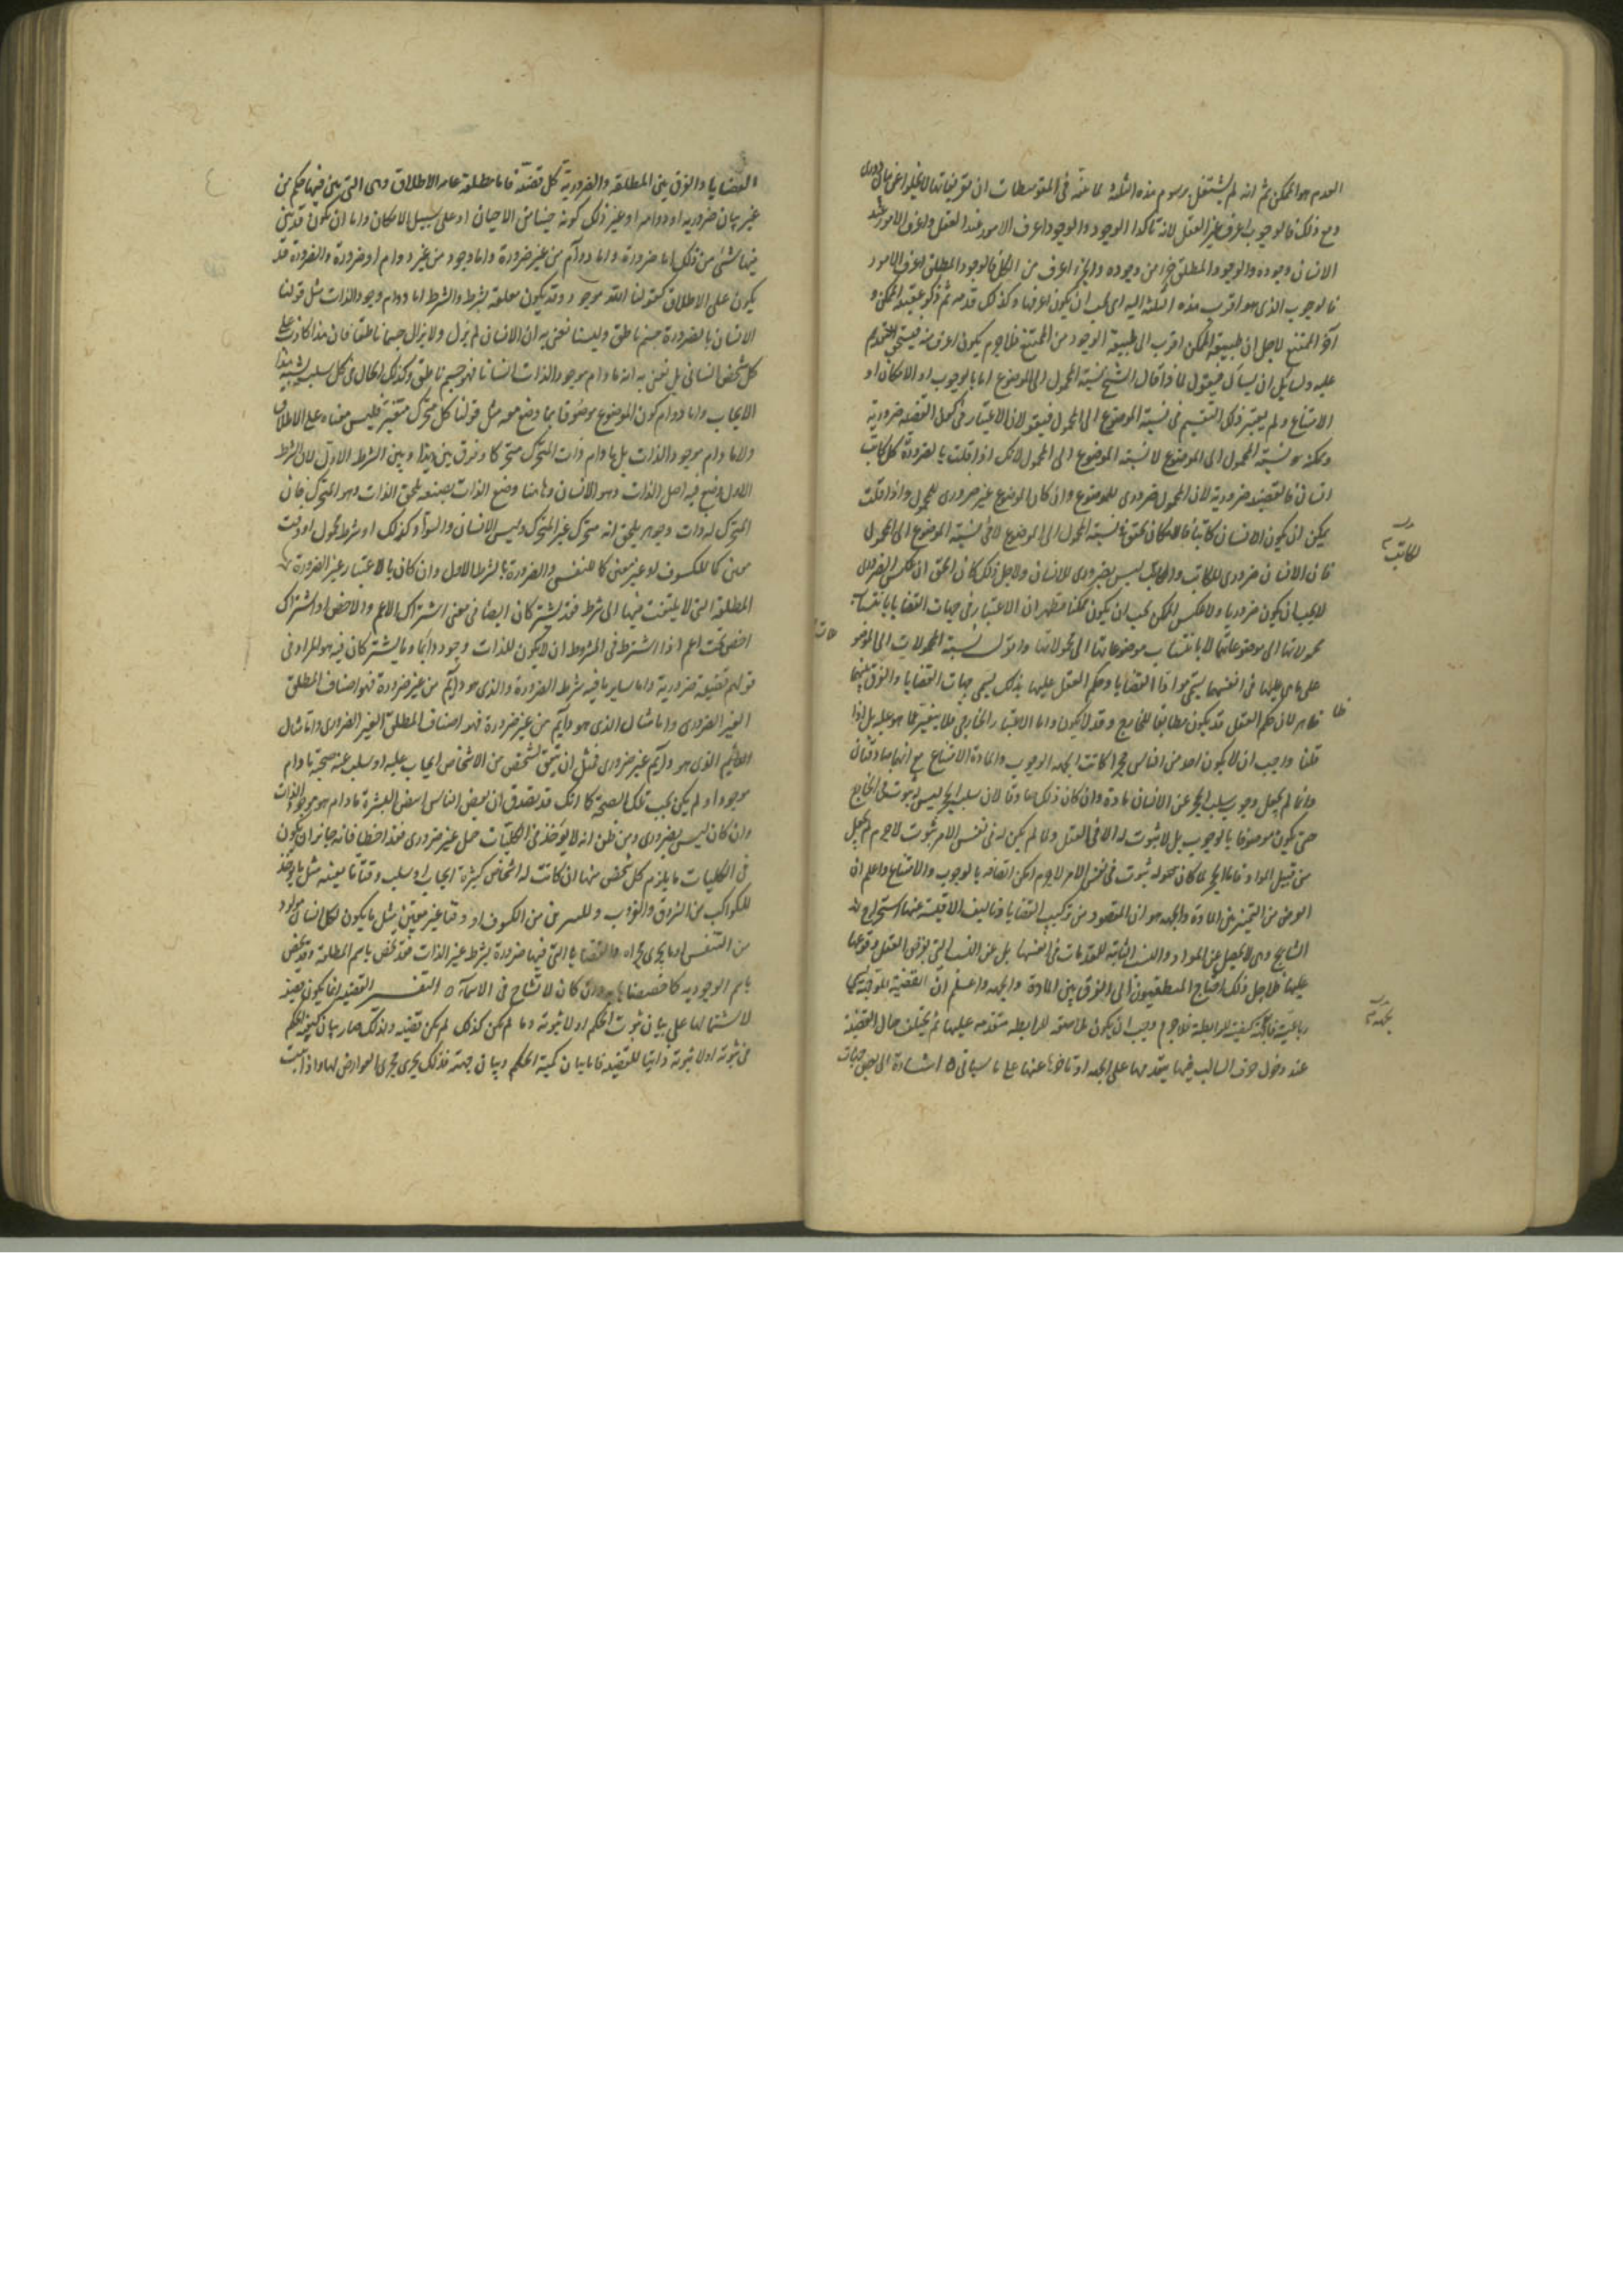 العدم هو الممكن ثم انه لم يشتغل برسوم هذه الثلثة لما عنه في المتوسطات ان تعريفاتها لا يخلوا عن بيان دوري
ومع ذلك فالوجوب اعرف عند العقل لانه تاكد الوجود والوجود اعرف الامور عند العقل واعرف الامور عند
الانسان وجوده والوجود المطلق جزء من وجوده والجزء اعرف من الكل فالوجود المطلق اعرف الامور
فالوجوب الذي هو اقرب هذه الثلثة اليه اي يجب ان يكون اعرفها وكذلك قدمه ثم ذكر عقيبه الممكن و
آخر الممتنع لاجل ان طبيعة الممكن اقرب الى طبيعة الوجود من الممتنع فلاجرم يكون اعرف منه فيستحق التقديم
عليه ولسائل ان يسأل فيقول لماذا قال الشيخ نسبة المحمول الى الموضوع اما بالوجوب او الامكان او
الامتناع ولم يعتبر ذلك التقسيم في نسبة الموضوع الى المحمول فيقول لان الاعتبار في كون القضيه ضرورية
وممكنه هو نسبة المحمول الى الموضوع لا نسبة الموضوع الى المحمول لانك اذا قلت بالضرورة كل كاتب
انسان فالقضيه ضرورية لان المحمول ضروري للموضوع وان كان الموضوع غير ضروري للمحمول واذا قلت
يمكن ان يكون الانسان كاتبا فالامكان تحقق في نسبة المحمول الى الموضوع لا في نسبة الموضوع الى المحمول
فان الانسان ضروري للكاتب والكاتب ليس بضروري للانسان ولاجل ذلك كان الحق ان عكس الضروري
لا يجب ان يكون ضروريا ولا عكس الممكن يجب ان يكون ممكنا فظهر ان الاعتبار في جهات القضايا بانتساب
محمولاتها الى موضوعاتها لا بانتساب موضوعاتها الى محمولاتها واقول نسبة المحمولات الى الموضو
على ما هي عليها في انفسها يسمى مواد القضايا وحكم العقل عليها بذلك يسمى جهات القضايا والفرق بينهما
ظاهر لان حكم العقل قد يكون مطابقا للخارج وقد لا يكون واما الاعتبار الخارجي فلا يتغير عما هو عليه بل اذا
قلنا واجب ان لا يكون احد من الناس حجرا كانت الجهه الوجوب والمادة الامتناع مع انهما صادقتان
وانما لم يجعل وجوب سلب الحجر عن الانسان مادة وان كان ذلك صادقا لان سلب الحجر ليس له ثبوت في الخارج
حتى يكون موصوفا بالوجوب بل لا ثبوت له الا في العقل ولما لم يكن له في نفس الامر ثبوت لاجرم لم يجعل
من قبيل المواد فاما الحجر لما كان محموله ثبوت في نفس الامر لاجرم امكن اتصافه بالوجوب والامتناع واعلم ان
الغرض من التمييز بين المادة والجهه هو ان المقصود من تركيب القضايا وتاليف الاقيسة عنها استخراج
النتايج وهي لا تحصل عن المواد والنسب الثابتة للمقدمات في انفسها بل عن النسب التي يوقع العقل وقوعها
عليها فلاجل ذلك احتاج المنطقيون الى الفرق بين المادة والجهه واعلم ان القضية الموجهة يسمى
رباعية فالجهة كيفية للرابطة فلاجرم وجب ان يكون ملاصقه للرابطة متقدمه عليها ثم يختلف حال القضية
عند دخول حرف السلب فيها بتقدمها على الجهه او تاخرها عنها على ما سياتي ٥ اشارة الى بعض جهات
للكاتب
ظا
القضايا والفرق بين المطلقة والضرورية كل قضية فاما مطلقة عامه الاطلاق وهي التي بين فيها حكم من
غير بيان ضروريه او دوامه او غير ذلك من كونه حينا من الاحيان او على سبيل الامكان واما ان يكون قد بين
فيها شئ من ذلك اما ضرورة واما دوام من غير ضرورة واما وجود من غير دوام او ضرورة والضرورة قد
يكون على الاطلاق كقولنا الله موجود وقد يكون معلقة بشرط والشرط اما دوام وجود الذات مثل قولنا
الانسان بالضرورة جسم ناطق ولسنا نعني به ان الانسان لم يزل ولا يزال جسما ناطقا فان هذا كاذب على
كل شخص انساني بل نعني به انه ما دام موجود الذات انسانا فهو جسم ناطق وكذلك الحال في كل سلب يشبه هذا
الايجاب واما دوام كون الموضوع موصوفا بما وضع معه مثل قولنا كل متحرك متغير فليس معناه على الاطلاق
ولا ما دام موجود الذات بل ما دام ذات المتحرك متحركا وفرق بين هذا وبين الشرط الاول لان الشرط
الاول وضع فيه اصل الذات وهو الانسان وهاهنا وضع الذات بصفة يلحق الذات وهو المتحرك فان
المتحرك له ذات وجوهر يلحق انه متحرك غير المتحرك وليس الانسان والسواد كذلك او شرط محمول او وقت
معين كما للكسوف او غير معين كما للتنفس والضرورة بالشرط الاول وان كان بالاعتبار غير الضرورة
المطلقة التي لا يلتفت فيها الى شرط فقد يشتركان ايضا في معنى اشتراك الاعم والاخص او اشتراك
اخصين تحت اعم اذا اشترط في المشروط ان لا يكون للذات وجود دايما وما يشتركان فيه هو المراد في
قولهم قضية ضرورية واما ساير ما فيه شرط الضرورة والذي هو دايم من غير ضرورة فهو اصناف المطلق
الغير الضروري واما مثال الذي هو دايم من غير ضرورة فهو اصناف المطلق الغير الضروري واما مثال
الدايم الذي هو دايم غير ضروري فمثل ان يتفق لشخص من الاشخاص ايجاب عليه او سلب عنه صحبه ما دام
موجودا ولم يكن يجب تلك الصحبة كما انك قد يصدق ان بعض الناس ابيض البشرة ما دام هو موجود الذات
وان كان ليس بضروري ومن ظن انه لا يوجد في الكليات حمل غير ضروري فقد اخطأ فانه جايز ان يكون
في الكليات ما يلزم كل شخص منها ان كانت له اشخاص كثيرة ايجاب او سلب وقتا ما بعينه مثل ما يوجد
للكواكب من الشروق والغروب وللنيرين من الكسوف او وقتا غير معين مثل ما يكون لكل انسان مولود
من التنفس او ما يجري مجراه والقضايا التي فيها ضرورة بشرط غير الذات فقد يخص باسم المطلقة وقد يخص
باسم الوجودية كما خصصناها به وان كان لا تشاح في الاسماء ٥ التفسير القضيه انما يكون قضية
لاشتمالها على بيان ثبوت الحكم او لا ثبوته وما لم يكن كذلك لم يكن قضيه ولذلك صار بيان كيفية الحكم
في ثبوته او لا ثبوته ذاتيا للقضيه فاما بيان كمية الحكم وبيان جهته فذلك يجري مجرى العوارض لها واذا ثبت